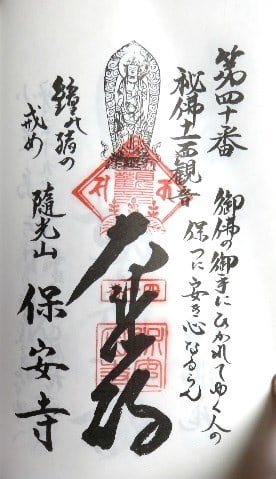 第四十番
秘佛十一面観音
御佛の御手にひかれてゆく人の
保つに安き心なるらん
大乗殿
鐘の緒の
戒め
隨光山
保安寺